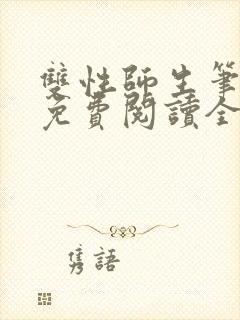 雙性師生筆
免費閱讀全
隽語